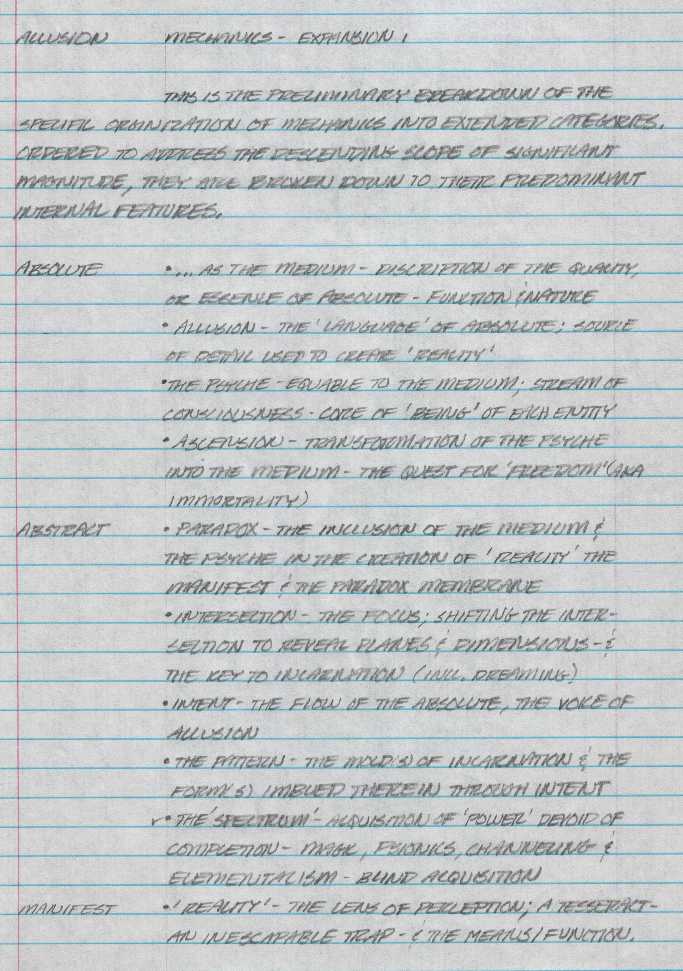 ALLUSION MECHANICS - EXPANSION 1
THIS IS THE PRELIMINARY BREAKDOWN OF THE
SPECIFIC ORGINIZATION OF MECHANICS INTO EXTENDED CATEGORIES.
ORDERED TO ADDRESS THE DESCENDING SCOPE OF SIGNIFICANT
MAGNITUDE, THEY ARE BROKEN DOWN TO THEIR PREDOMINANT
INTERNAL FEATURES.
ABSOLUTE • ... AS THE MEDIUM - DISCRIPTION OF THE QUALITY,
OR ESSENCE OF ABSOLUTE - FUNCTION & NATURE
• ALLUSION - THE 'LANGUAGE' OF ABSOLUTE; SOURCE
OF DETAIL USED TO CREATE 'REALITY'
• THE PSYCHE - EQUABLE TO THE MEDIUM; STREAM OF
CONSCIOUSNESS - CORE OF 'BEING' OF EACH ENTITY
• ASCENSION - TRANSFORMATION OF THE PSYCHE
INTO THE MEDIUM - THE QUEST FOR 'FREEDOM' (AKA
IMMORTALITY)
ABSTRACT • PARADOX - THE INCLUSION OF THE MEDIUM &
THE PSYCHE IN THE CREATION OF 'REALITY' THE
MANIFEST & THE PARADOX MEMBRANE
• INTERSECTION - THE FOCUS; SHIFTING THE INTER-
SECTION TO REVEAL PLANES & DIMENSIONS - &
THE KEY TO INCARNATION (INCL. DREAMING)
• INTENT - THE FLOW OF THE ABSOLUTE, THE VOICE OF
ALLUSION
• THE PATTERN - THE MOLD(S) OF INCARNATION & THE
FORM(S) IMBUED THEREIN THROUGH INTENT
✓ • THE 'SPECTRUM' - ACQUISITION OF 'POWER' DEVOID OF
COMPLETION - MAGIC, PSIONICS, CHANNELING &
ELEMENTALISM - BLIND ACQUISITION
MANIFEST • 'REALITY' - THE LENS OF PERCEPTION; A TESSERACT -
AN INESCAPABLE TRAP - & THE MEANS/FUNCTION.